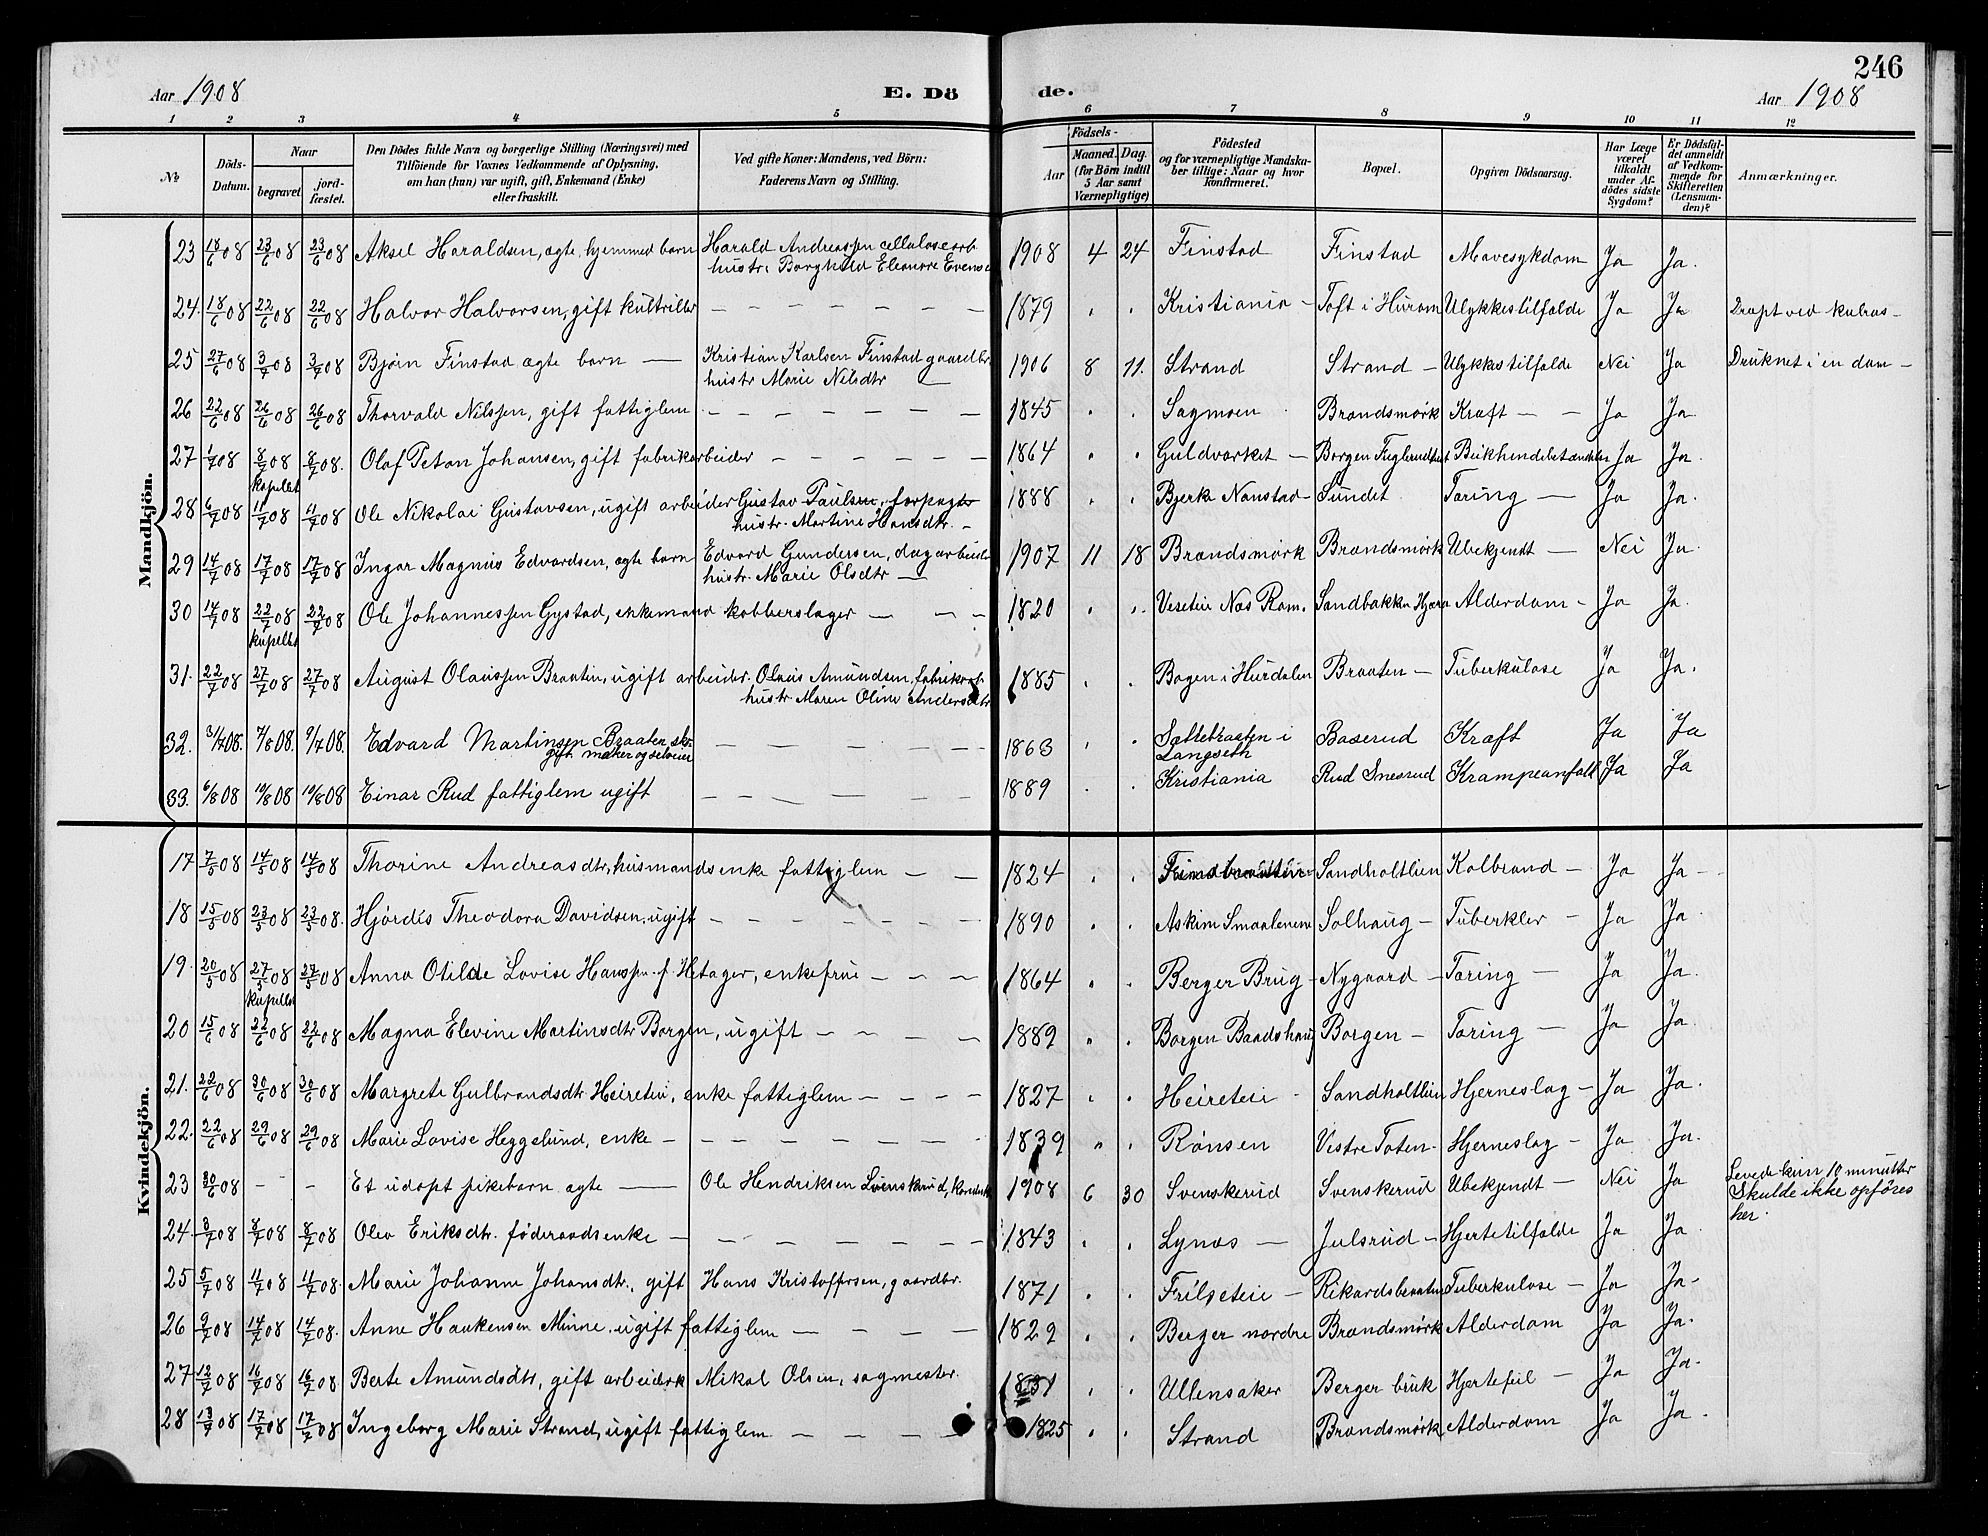 246
Aar 1908 E. Dö de. Aar 1908
1 2 3 4 5 6 7 8 9 10 11 12
№ Döds-Datum. Naar begravet jord-fæstet. Den Dödes fulde Navn og borgerlige Stilling (Næringsvei) med Tilföiende for Voxnes Vedkommende af Oplysning, om han (hun) var ugift, gift, Enkemand (Enke) eller fraskilt. Ved gifte Koner: Mandens, ved Börn: Faderens Navn og Stilling. Födsels- Aar Maaned. Dag. (for Börn indtil 5 Aar samt Værnepligtige) Födested og for værnepligtige Mandskaber tillige: Naar og hvor konfirmeret. Bopæl. Opgiven Dödsaarsag. Har Læge været tilkaldt under Afdödes sidste Sygdom? Er Dödsfaldet anmeldt af Vedkommende for Skifteretten (Lensmanden)? Anmærkninger.
Mandkjön.
23 18/6 08 23/6 08 23/6 08 Aksel Haraldsen, ægte hjemmed barn Harald Andreassen cellulosearb hustr. Borghild Eleonore Evens 1908 4 24 Finstad Finstad Mavesykdom Ja Ja.
24. 18/6 08 22/6 08 22/6 08 Halvor Halvorsen, gift kultriller — — — — — — 1879 . . Kristiania — Toft i Hurum Ulykkestilfælde Ja Ja Dræpt ved kulras —
25 27/6 08 3/7 08 3/7 08 Bjørn Finstad ægte barn — Kristian Karlsen Finstad gaardbr. hustr Marie Nilsdtr — 1906 8 11. Strand Strand — Ulykkestilfælde Nei Ja Druknet i en dam —
26 22/6 08 26/6 08 26/6 08 Thorvald Nilssen, gift fattiglem — — — — — — 1845 . . Sagmoen Brandsmørk Kræft — — Ja Ja.
27 1/7 08 8/7 08 kapellet 8/7 08. Olaf Petan Johansen, gift fabrikarbeider — — — — — 1864 . . Guldverket — Borgen Ja Ja.
28 6/7 08 11/7 08 11/7 08 Ole Nikolai Gustavsen, ugift arbeider Gustav Paulsen, forpagter hustr. Martine Hansdtr. — 1888 . . Bjerke Nanstad — Sundet Tæring — Ja Ja.
29 14/7 08 17/7 08 17/7 08 Ingar Magnus Edvardsen, ægte barn Edvard Gundersen, dagarbeider hustr. Marie Olsdtr — 1907 11 18 Brandsmørk Brandsmørk Ubekjendt — Nei Ja.
30 14/7 08 22/7 08 kapellet 22/7 08 Ole Johannessen Gystad, enkemand kobberslager — — — 1820 . . Veseteie Næs Rom. Sandbakken Alderdom — Ja Ja.
31. 22/7 08 27/7 08 27/7 08 August Olaussen Braaten, ugift arbeider. Olaus Amundsen, fabrikarb. hustr Maren Oline Andersdtr 1885 . . Bagen i Hurdalen Braaten — Tuberkulose Ja Ja.
32. 31/7 08. 7/8 08. 9/7 08. Edvard Martinsen Braaten, skomaker og selveier gift — — — — — 1863 . . Sættebraaten i Langseth Baserud Kræft Ja Ja
33. 6/8 08 10/8 08 10/8 08 Einar Rud fattiglem ugift — — — — — — 1889 . . Kristiania Rud Snesrud Krampeanfald Ja Ja
Kvindekjön.
17 7/5 08 14/5 08 14/5 08 Thorine Andreasdtr, husmandsenke fattiglem — — 1824 . . Sandholtlien Kolbrand — Ja Ja —
18 15/5 08 23/5 08 23/5 08. Hjørdis Theodora Davidsen, ugift — — — — — — 1890 . . Askim Smaalenene Solhaug — Tuberkler — Ja Ja.
19. 20/5 08 27/5 08 kapellet 27/5 08 Anna Otilde Lovise Hanssen f. Hetager, enkefrue — — — 1864 . . Berger Brug — Nygaard — Tæring — Ja Ja.
20 15/6 08 22/6 08 22/6 08 Magna Elevine Martinsdtr Borgen, ugift — — — — 1889 . . Borgen Baadshaug Borgen — Tæring — Ja Ja.
21. 22/6 08 30/6 08 30/6 08 Margrete Gulbrandsdtr Heireteie, enke fattiglem — — — — 1827 . . Heireteie Sandholtlien Hjerneslag — Ja Ja.
22. 22/6 08 29/6 08 29/6 08 Marie Lovise Heggelund, enke — — — — — — 1839 . . Rønsen Vestre Toten — Hjerneslag — Ja Ja.
23 30/6 08 — — Et udøpt pikebarn ægte — Ole Hendriksen Svenskerud, 1908 6 30 Svenskerud Svenskerud Ubekjendt — Nei Ja Levede kun 10 minutter Skulde ikke opføres her.
24. 3/7 08 8/7 08 8/7 08 Olea Eriksdtr. føderaadsenke — — — — — — — 1843 . . Lynæs — Julsrud — Hjertetilfælde Ja Ja.
25 5/7 08 11/7 08 11/7 08. Marie Johanne Johansdtr., gift Hans Kristoffersen, gaardbr. 1871 . . Frilseteie — Rikardsbraaten Tuberkulose — Ja Ja —
26 9/7 08 14/7 08 14/7 08. Anne Haakensen Minne, ugift fattiglem — — — — 1829 . . Berger nordre Brandsmørk Alderdom Ja Ja.
27 12/7 08 16/7 08 16/7 08. Berte Amundsdtr, gift arbeiderk Mikal Olsen, sagmester. 1831 . . Ullensaker Berger bruk Hjertefeil — Ja Ja.
28 13/7 08 17/7 08 17/7 08 Ingeborg Marie Strand, ugift fattiglem — — — — 1825 . . Strand Brandsmørk Alderdom Ja Ja.